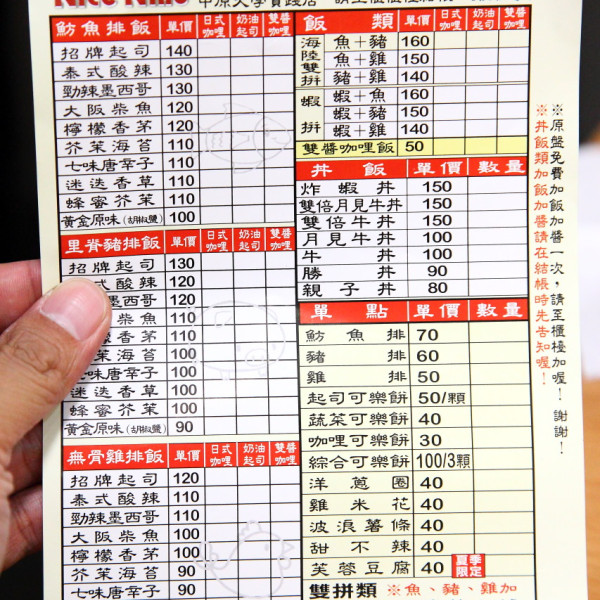 魴魚排飯 單價 日式咖哩 奶油起司 雙醬咖哩
招牌起司 140
泰式酸辣 130
勁辣墨西哥 130
大阪柴魚 120
檸檬香茅 120
芥茉海苔 110
七味唐辛子 110
迷迭香草 110
蜂蜜芥茉 110
黃金原味(胡椒鹽) 100
里脊豬排飯 單價 日式咖哩 奶油起司 雙醬咖哩
招牌起司 130
酸辣 120
辣墨西哥 120
柴魚 110
香茅 110
茉海苔 100
七味唐辛子 100
迷迭香草 100
蜂蜜芥茉 100
黃金原味(胡椒鹽) 90
無骨雞排飯 單價 日式咖哩 奶油起司 雙醬咖哩
招牌起司 120
泰式酸辣 110
勁辣墨西哥 110
大阪柴魚 100
檸檬香茅 100
芥茉海苔 90
七味唐辛子 90
飯類 單價 數量
海陸雙拼 魚+豬 160
魚+雞 150
豬+雞 140
蝦拼 蝦+魚 160
蝦+豬 150
蝦+雞 140
雙醬咖哩飯 50
丼飯 單價 數量
炸蝦丼 150
雙倍月見牛丼 150
雙倍牛丼 150
月見牛丼 100
牛丼 100
勝丼 90
親子丼 80
單點 單價 數量
魴魚排 70
豬排 60
雞排 50
起司可樂餅 50/顆
蔬菜可樂餅 40
咖哩可樂餅 30
綜合可樂餅 100/3顆
洋蔥圈 40
雞米花 40
波浪薯條 40
甜不辣 40
芙蓉豆腐 40 夏季限定
雙拼類 ※魚、豬、雞加
※原盤免費加飯加醬一次,請至櫃檯加喔!謝謝!
※丼飯類加飯加醬請在結帳時先告知喔!